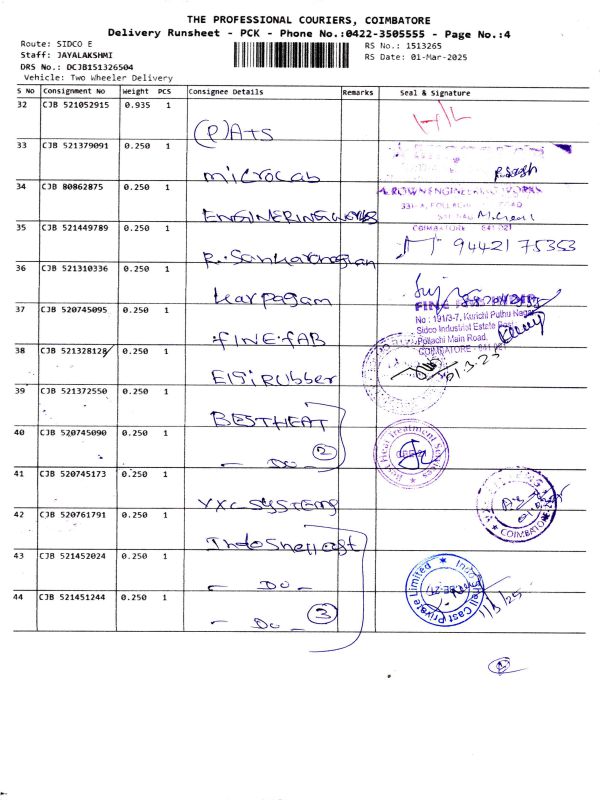 THE PROFESSIONAL COURIERS, COIMBATORE
Delivery Runsheet - PCK - Phone No.:0422-3505555 - Page No.:4
Route: SIDCO E
RS No.: 1513265
Staff: JAYALAKSHMI
RS Date: 01-Mar-2025
DRS No.: DCJB151326504
Vehicle: Two Wheeler Delivery
S No Consignment No Weight PCS Consignee Details Remarks Seal & Signature
32 CJB 521052915 0.935 1 (P) A+S H/L
33 CJB 521379091 0.250 1 microlab
34 CJB 80862875 0.250 1 ENGINERINGWORKS
35 CJB 521449789 0.250 1 94421 75353
36 CJB 521310336 0.250 1 Karpagam
37 CJB 520745095 0.250 1 FINE FAB
No : 191/3-7, Kurichi Puthu Nagar
Sidco Industrial Estate
Pollachi Main Road,
COIMBATORE - 641 021
38 CJB 521328128 0.250 1 Elgi rubber 01.3.25
39 CJB 521372550 0.250 1 BESTHEAT
40 CJB 520745090 0.250 1 - Do - 2
Best Heat Treatment Services
41 CJB 520745173 0.250 1 VXC SYSTEMS
COIMBATORE
42 CJB 520761791 0.250 1 Indo Shell cast
43 CJB 521452024 0.250 1 - Do -
Indo Shell Cast Private Limited
1/3/25
44 CJB 521451244 0.250 1 - Do - 3